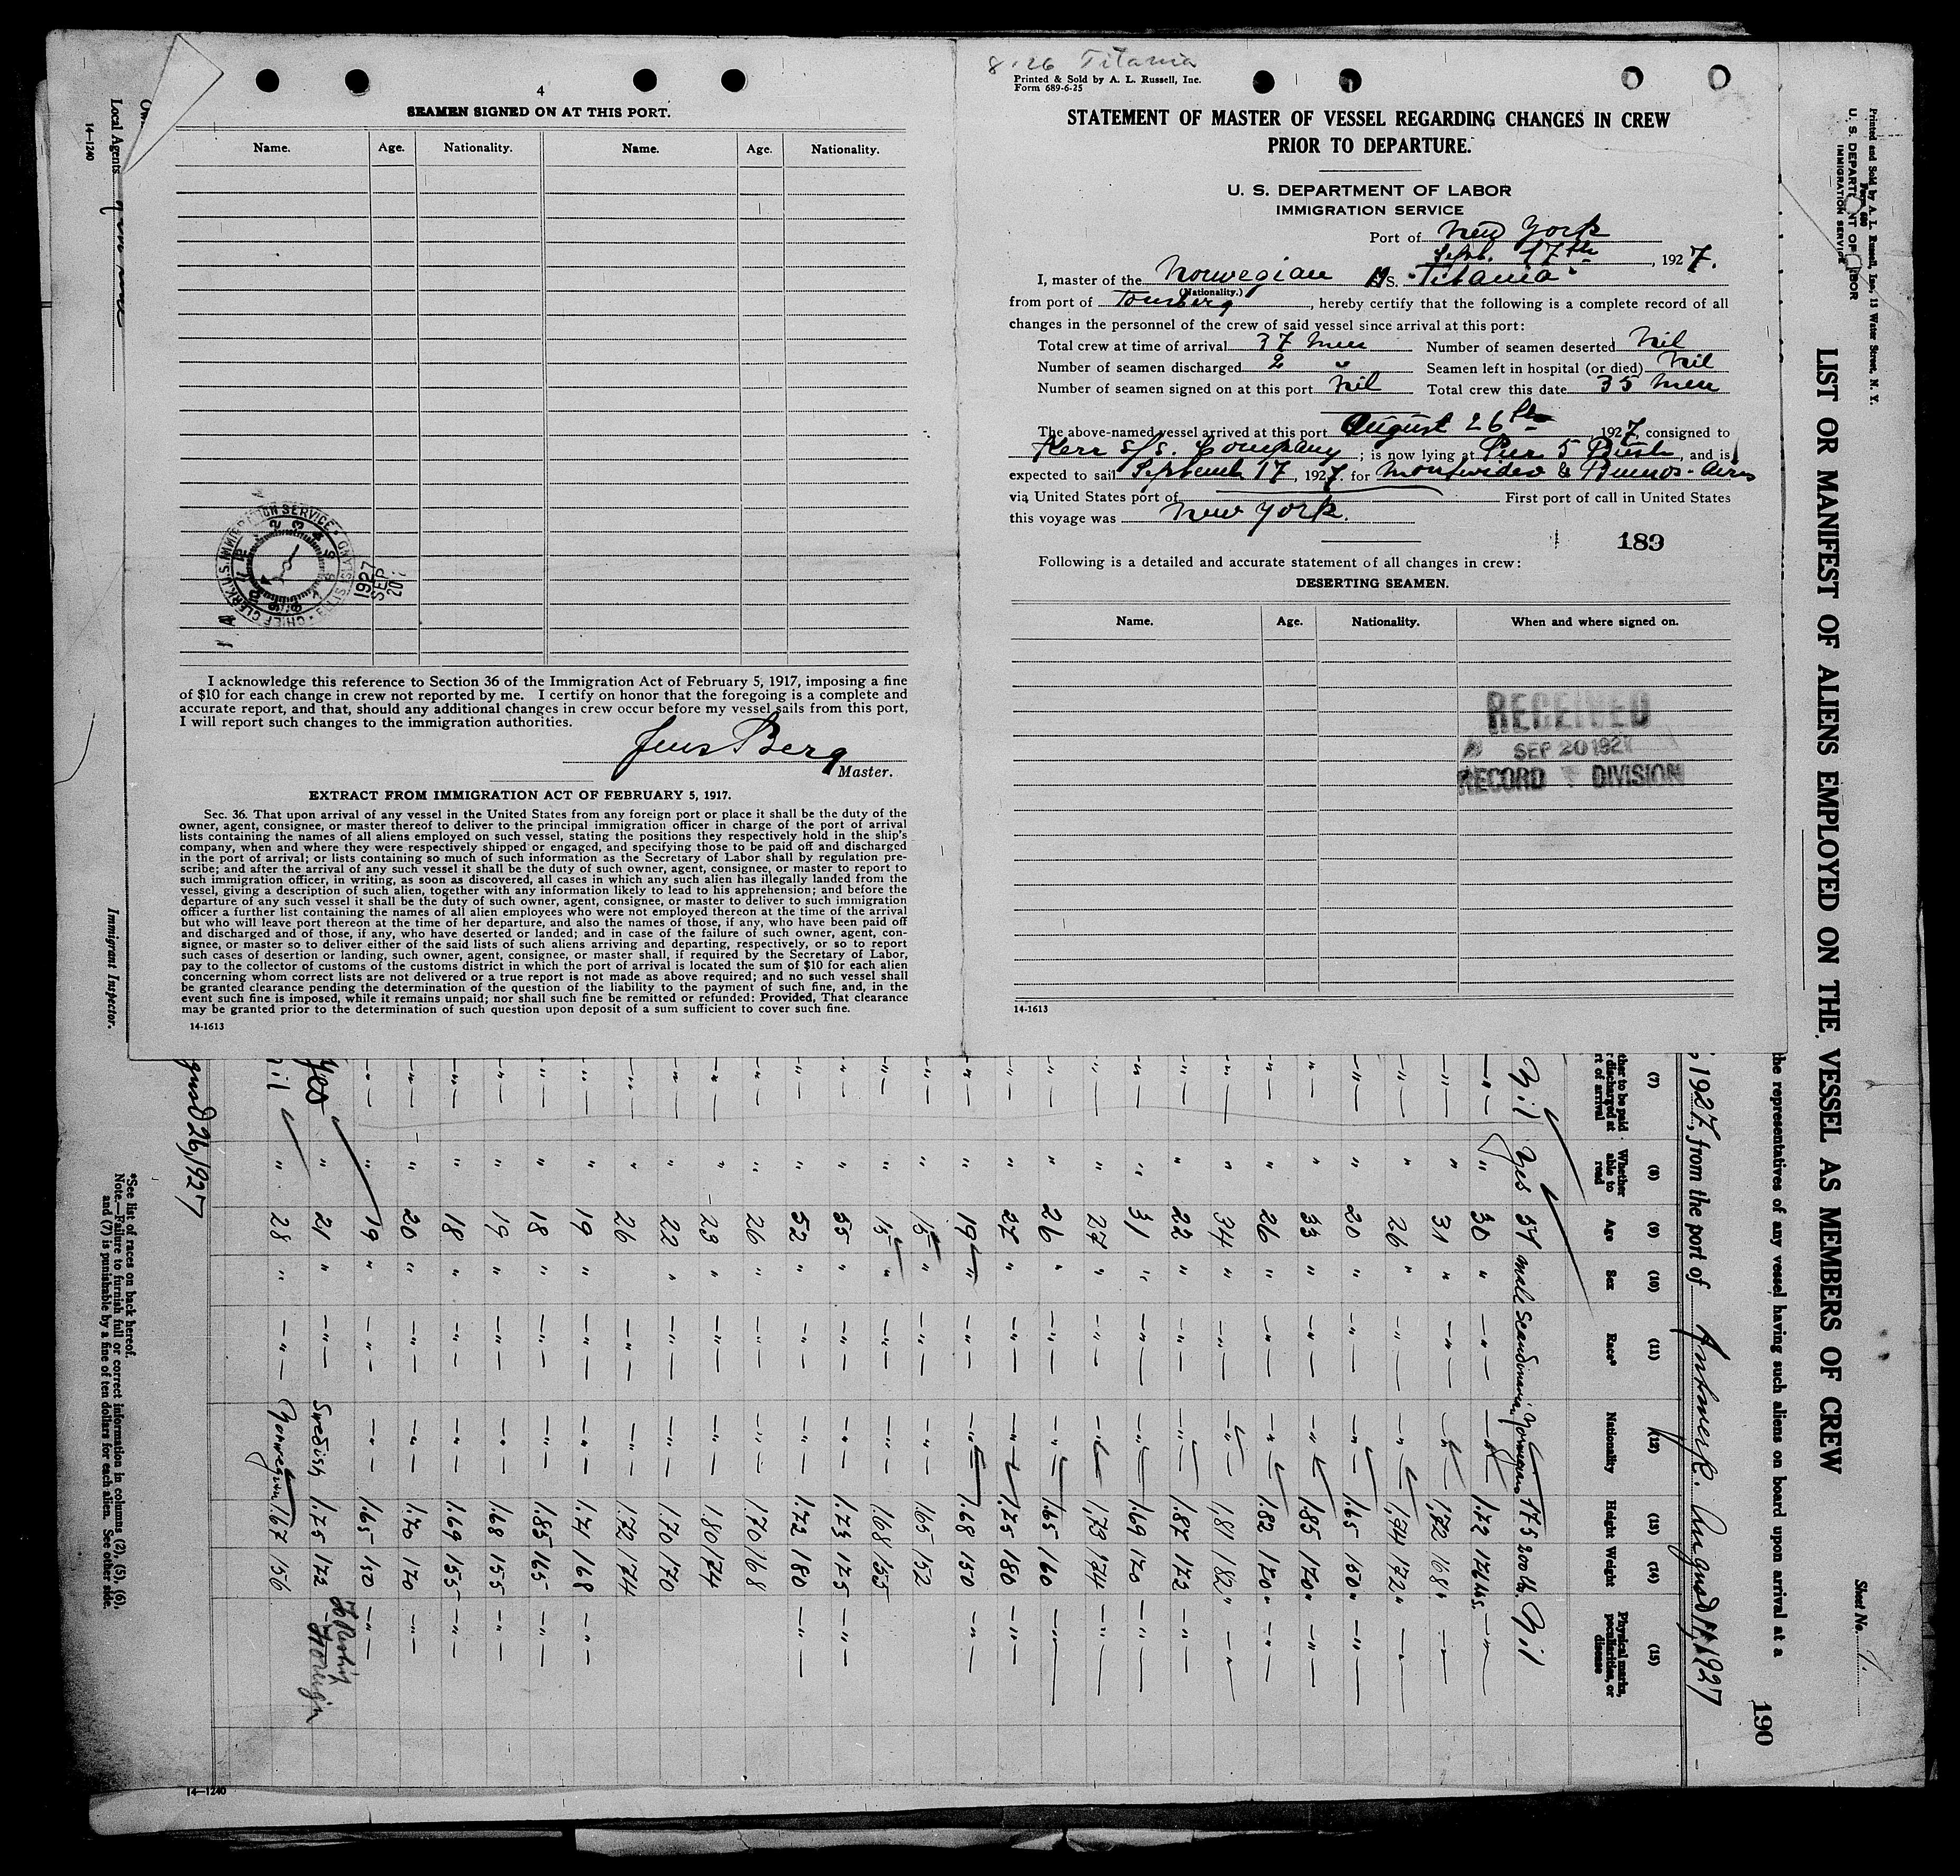 4
SEAMEN SIGNED ON AT THIS PORT.
Name. Age. Nationality. Name. Age. Nationality.
CHIEF CLERK, U.S. IMMIGRATION SERVICE · ELLIS ISLAND
1927
SEP
20
I acknowledge this reference to Section 36 of the Immigration Act of February 5, 1917, imposing a fine
of $10 for each change in crew not reported by me. I certify on honor that the foregoing is a complete and
accurate report, and that, should any additional changes in crew occur before my vessel sails from this port,
I will report such changes to the immigration authorities.
Jens Berg
Master.
EXTRACT FROM IMMIGRATION ACT OF FEBRUARY 5, 1917.
Sec. 36. That upon arrival of any vessel in the United States from any foreign port or place it shall be the duty of the
owner, agent, consignee, or master thereof to deliver to the principal immigration officer in charge of the port of arrival
lists containing the names of all aliens employed on such vessel, stating the positions they respectively hold in the ship's
company, when and where they were respectively shipped or engaged, and specifying those to be paid off and discharged
in the port of arrival; or lists containing so much of such information as the Secretary of Labor shall by regulation pre-
scribe; and after the arrival of any such vessel it shall be the duty of such owner, agent, consignee, or master to report to
such immigration officer, in writing, as soon as discovered, all cases in which any such alien has illegally landed from the
vessel, giving a description of such alien, together with any information likely to lead to his apprehension; and before the
departure of any such vessel it shall be the duty of such owner, agent, consignee, or master to deliver to such immigration
officer a further list containing the names of all alien employees who were not employed thereon at the time of the arrival
but who will leave port thereon at the time of her departure, and also the names of those, if any, who have been paid off
and discharged and of those, if any, who have deserted or landed; and in case of the failure of such owner, agent, con-
signee, or master so to deliver either of the said lists of such aliens arriving and departing, respectively, or so to report
such cases of desertion or landing, such owner, agent, consignee, or master shall, if required by the Secretary of Labor,
pay to the collector of customs of the customs district in which the port of arrival is located the sum of $10 for each alien
concerning whom correct lists are not delivered or a true report is not made as above required; and no such vessel shall
be granted clearance pending the determination of the question of the liability to the payment of such fine, and, in the
event such fine is imposed, while it remains unpaid; nor shall such fine be remitted or refunded: Provided, That clearance
may be granted prior to the determination of such question upon deposit of a sum sufficient to cover such fine.
14-1613
8.26 Titania
Printed & Sold by A. L. Russell, Inc.
Form 689-6-25
STATEMENT OF MASTER OF VESSEL REGARDING CHANGES IN CREW
PRIOR TO DEPARTURE.
U. S. DEPARTMENT OF LABOR
IMMIGRATION SERVICE
Port of New York
Septb. 17th, 1927.
I, master of the Norwegian M S. "Titania"
(Nationality.)
from port of Tonsberg, hereby certify that the following is a complete record of all
changes in the personnel of the crew of said vessel since arrival at this port:
Total crew at time of arrival 37 men Number of seamen deserted Nil
Number of seamen discharged 2 " Seamen left in hospital (or died) Nil
Number of seamen signed on at this port Nil Total crew this date 35 men
The above-named vessel arrived at this port August 26th, 1927, consigned to
Kerr S/S. Company; is now lying at Pier 5 Bush, and is
expected to sail September 17, 1927. for Montevideo & Buenos-Aires
via United States port of First port of call in United States
this voyage was New York.
183
Following is a detailed and accurate statement of all changes in crew:
DESERTING SEAMEN.
Name. Age. Nationality. When and where signed on.
RECEIVED
SEP 20 1927
RECORD DIVISION
14-1613
Local Agents
14—1240
Immigrant Inspector.
Printed and Sold by A. L. Russell, Inc., 13 Water Street, N. Y.
Form 689
U. S. DEPARTMENT OF LABOR
IMMIGRATION SERVICE
Sheet No. 1.
LIST OR MANIFEST OF ALIENS EMPLOYED ON THE VESSEL AS MEMBERS OF CREW
the representatives of any vessel having such aliens on board upon arrival at a
190
, 1927, from the port of Antwerp. August 1927
(7) (8) (9) (10) (11) (12) (13) (14) (15)
ther to be paid
r discharged at
rt of arrival
Whether able to read
Age
Sex
Race*
Nationality
Height
Weight
Physical marks, peculiarities, or disease
Nil Yes 57 male Scandinavian Norwegian 175 200 lb. Nil
—"— " 30 " —"— —"— 1.72 176 lbs. —"—
—"— " 31 " —"— —"— 1.72 168 " —"—
—"— " 26 " —"— —"— 1.74 172 " —"—
—"— " 20 " —"— —"— 1.65 150 " —"—
—"— " 33 " —"— —"— 1.85 170 " —"—
—"— " 26 " —"— —"— 1.82 170 " —"—
—"— " 34 " —"— —"— 1.81 182 " —"—
—"— " 22 " —"— —"— 1.87 173 —"—
—"— " 31 " —"— —"— 1.69 170 —"—
—"— " 27 " —"— —"— 1.73 174 —"—
—"— " 26 " —"— —"— 1.65 160 —"—
—"— " 27 " —"— —"— 1.75 180 —"—
—"— " 19 " —"— —"— 1.68 150 —"—
—"— " 15 " —"— —"— 1.65 152
—"— " 15 " —"— —"— 1.68 155
—"— " 55 " —"— —"— 1.73 175 —"—
—"— " 52 " —"— —"— 1.72 180 —"—
—"— " 26 " —"— —"— 1.70 168
—"— " 23 " —"— —"— 1.80 174
—"— " 22 " —"— —"— 1.70 170
—"— " 26 " —"— —"— 1.72 174
—"— " 19 " —"— —"— 1.71 168 —"—
—"— " 18 " —"— —"— 1.85 165 —"—
—"— " 19 " —"— —"— 1.68 155 —"—
—"— " 18 " —"— —"— 1.69 155 —"—
—"— " 20 " —"— —"— 1.70 170 —"—
—"— " 19 " —"— —"— 1.65 150 —"—
Yes " 21 " —"— Swedish 1.75 172 To Reship Foreign
Nil " 28 " —"— Norwegian 1.67 156
August 26, 1927
*See list of races on back hereof.
Note.—Failure to furnish full or correct information in columns (2), (5), (6),
and (7) is punishable by a fine of ten dollars for each alien. See other side.
14—1240